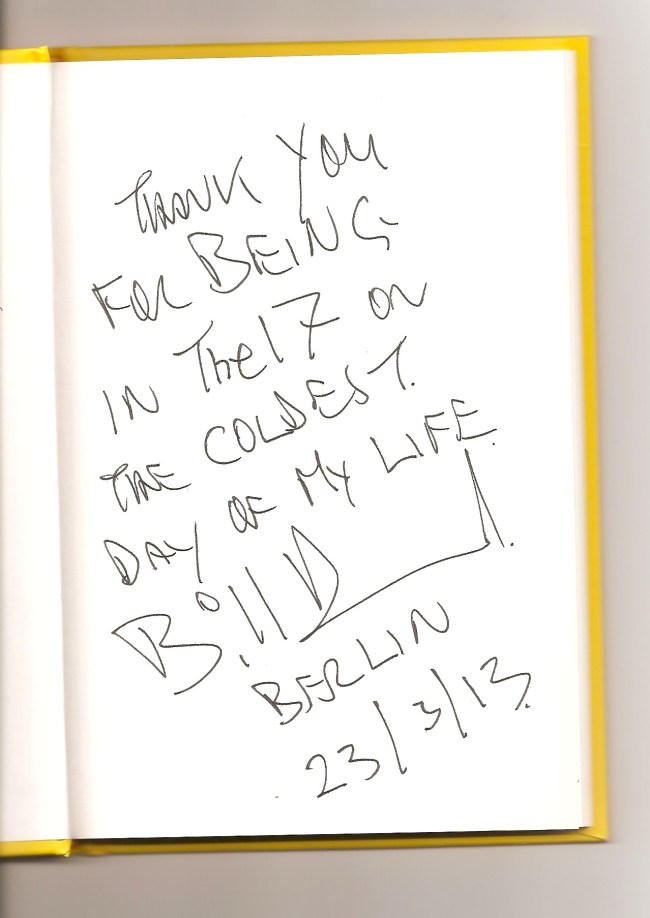 THANK YOU
FOR BEING
IN The 17 ON
THE COLDEST.
DAY OF MY LIFE.
Bill D
BERLIN
23/3/13.